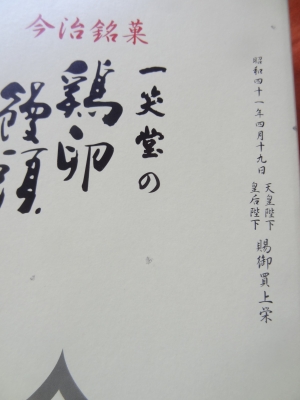 今治銘菓
昭和四十一年四月十九日
天皇陛下
皇后陛下
賜御買上栄
一笑堂の
鶏卵
饅頭